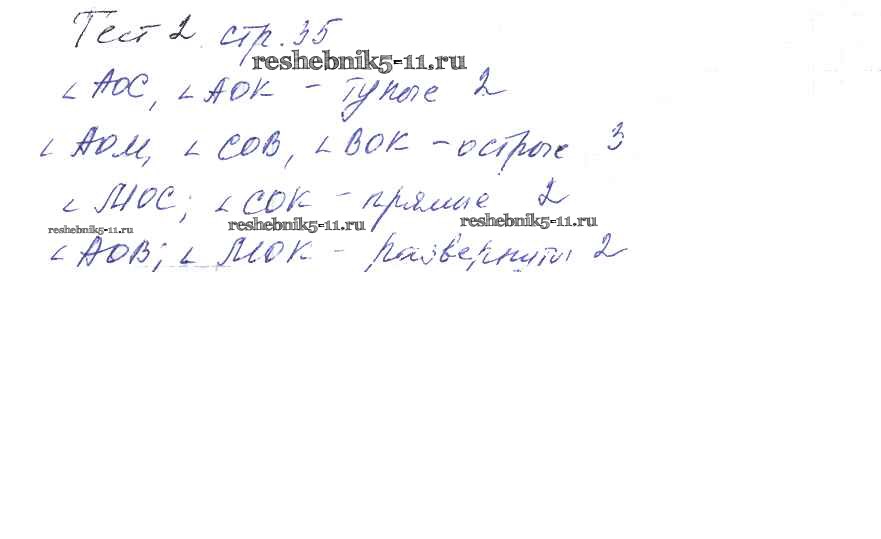 Тест 2 стр. 35
reshebnik5-11.ru
∠ АОС, ∠ АОК – тупые 2
∠ АОМ, ∠ СОВ, ∠ ВОК – острые 3
∠ МОС; ∠ СОК – прямые 2
reshebnik5-11.ru reshebnik5-11.ru reshebnik5-11.ru
∠ АОВ; ∠ МОК – развернуты 2